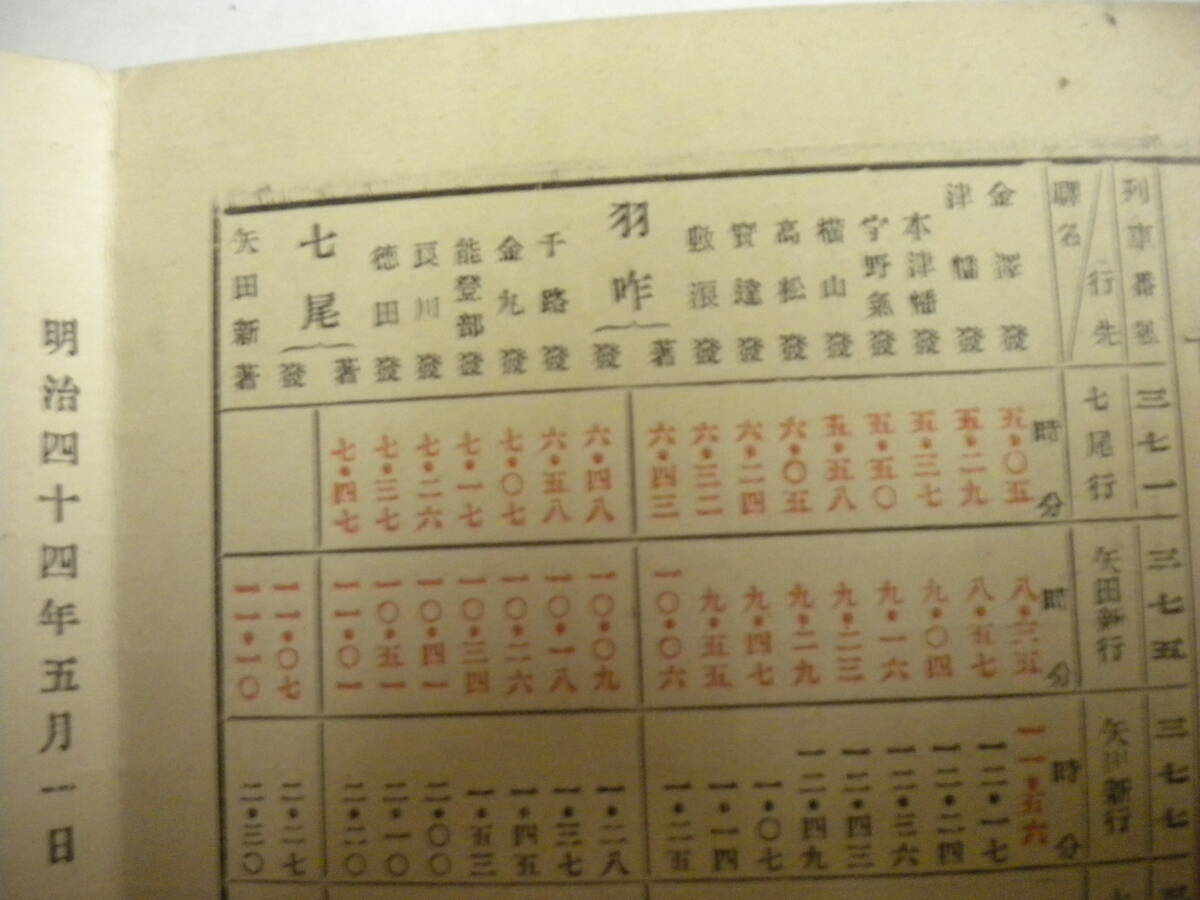 列車番號 三七一 三七五 三七七
驛名 行先 七尾行 矢田新行 矢田新行
時分 時分 時分
金澤 發 五・〇五 八・三五 一一・五六
津幡 發 五・二九 八・五七 一二・一七
本津幡 發 五・三七 九・〇四 一二・二四
宇野氣 發 五・五〇 九・一六 一二・三六
橫山 發 五・五八 九・二三 一二・四三
高松 發 六・〇五 九・二九 一二・四九
寶達 發 六・二四 九・四七 一・〇七
敷浪 發 六・三二 九・五五 一・一四
羽咋 著 六・四三 一〇・〇六 一・二五
發 六・四八 一〇・〇九 一・二八
千路 發 六・五八 一〇・一八 一・三七
金丸 發 七・〇七 一〇・二六 一・四五
能登部 發 七・一七 一〇・三四 一・五三
良川 發 七・二六 一〇・四一 二・〇〇
徳田 發 七・三七 一〇・五一 二・一〇
七尾 著 七・四七 一一・〇一 二・二〇
發 一一・〇七 二・二七
矢田新 著 一一・一〇 二・三〇
明治四十四年五月一日